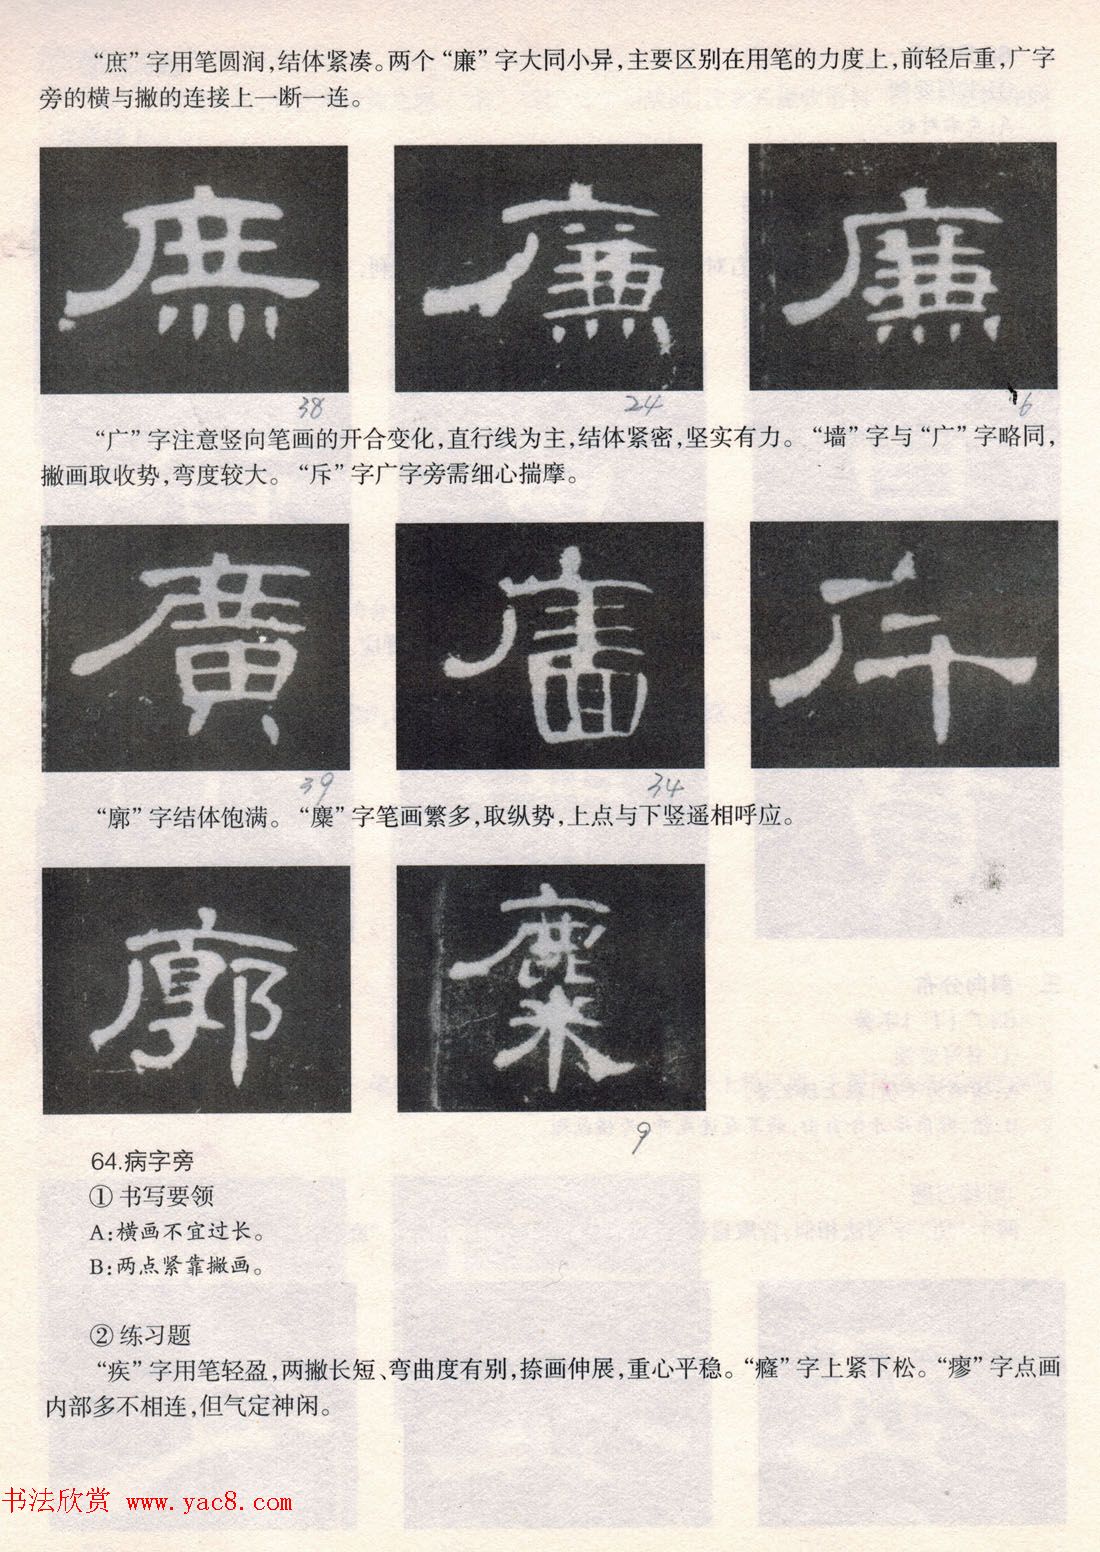 “庶”字用笔圆润，结体紧凑。两个“廉”字大同小异，主要区别在用笔的力度上，前轻后重，广字
旁的横与撇的连接上一断一连。
庶 廉 廉
38 24 6
“广”字注意竖向笔画的开合变化，直行线为主，结体紧密，坚实有力。“墙”字与“广”字略同，
撇画取收势，弯度较大。“斥”字广字旁需细心揣摩。
廣
39 34
“廓”字结体饱满。“糜”字笔画繁多，取纵势，上点与下竖遥相呼应。
廓 糜
9
64.病字旁
①书写要领
A:横画不宜过长。
B:两点紧靠撇画。
②练习题
“疾”字用笔轻盈，两撇长短、弯曲度有别，捺画伸展，重心平稳。“癃”字上紧下松。“瘳”字点画
内部多不相连，但气定神闲。
书法欣赏 www.yac8.com